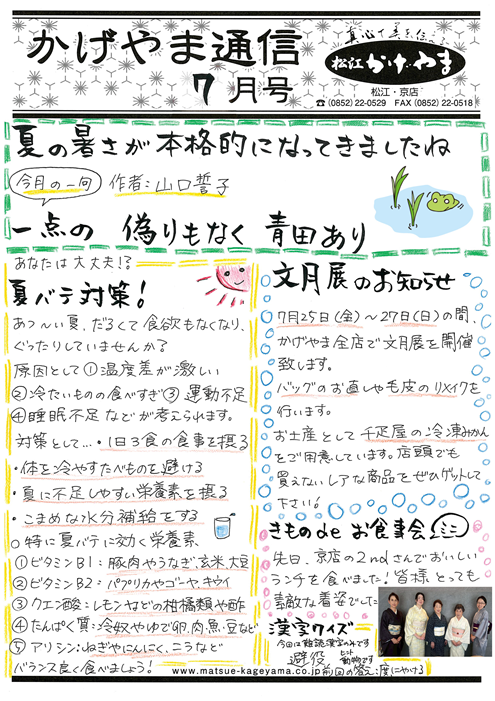 かげやま通信
7月号
真心で美を伝う
松江 かげやま
松江・京店
☎(0852)22-0529 FAX(0852)22-0518
夏の暑さが本格的になってきましたね
今月の一句 作者:山口誓子
一点の 偽りもなく 青田あり
あなたは大丈夫!?
夏バテ対策!
あつ〜い夏、だるくて食欲もなくなり、
ぐったりしていませんか?
原因として①温度差が激しい
②冷たいものの食べすぎ③運動不足
④睡眠不足などが考えられます。
対策として…・1日3食の食事を摂る
・体を冷やすたべものを避ける
・夏に不足しやすい栄養素を摂る
・こまめな水分補給をする
○特に夏バテに効く栄養素
①ビタミンB1:豚肉やうなぎ、玄米、大豆
②ビタミンB2:パプリカやゴーヤ、キウイ
③クエン酸:レモンなどの柑橘類や酢
④たんぱく質:冷奴やゆで卵、肉、魚、豆など
⑤アリシン:ねぎやにんにく、ニラなど
バランス良く食べましょう!
文月展のお知らせ
7月25日(金)〜27日(日)の間、
かげやま全店で文月展を開催
致します。
バッグのお直しや毛皮のリメイクを
行います。
お土産として千疋屋の冷凍みかん
をご用意しています。店頭でも
買えないレアな商品をぜひゲットして
下さい!
きものde お食事会 ミニ
先日、京店の2ndさんでおいしい
ランチを食べました!皆様とっても
素敵な着姿でした
漢字クイズ
今回は難読漢字のみです
避役 ヒント 動物です
前回の答え:虔につける
www.matsue-kageyama.co.jp